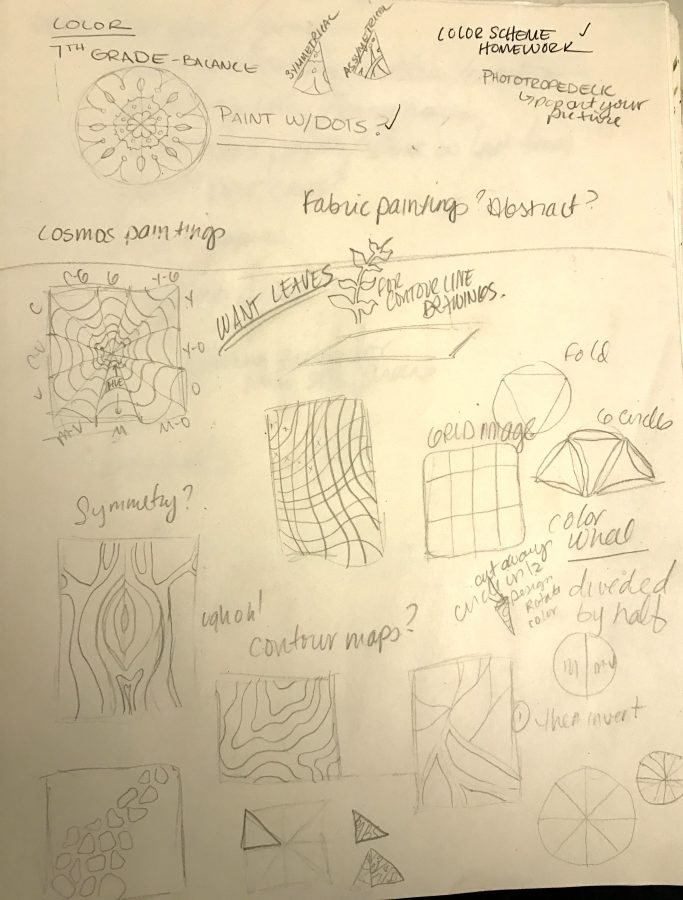 COLOR
7TH GRADE-BALANCE
SYMMETRICAL
ASSYMETRICAL
COLOR SCHEME
HOMEWORK
PHOTOTROPEDELIC
pop art your
picture
PAINT W/DOTS?
Fabric paintings? Abstract?
Cosmos paintings
WANT LEAVES
FOR
CONTOUR LINE
DRAWINGS.
C-G G Y-G
C Y
Y-O
HUE
V O
M-V M M-O
Fold
GRID IMAGE
6 circles
Symmetry?
Color
wheel
cut away
circle in 1/2
Design
Rotate
color
divided
by half
ughoh!
contour maps?
M M-V
① then invert